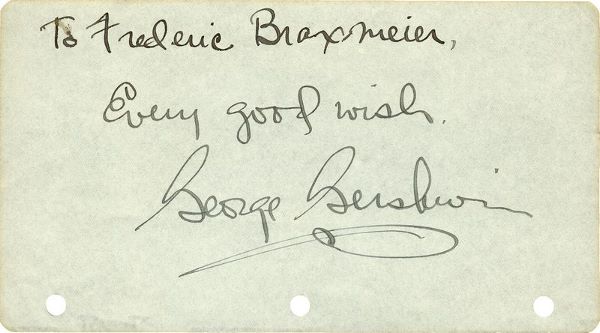 To Frederic Braxmeier,
Every good wish.
George Gershwin